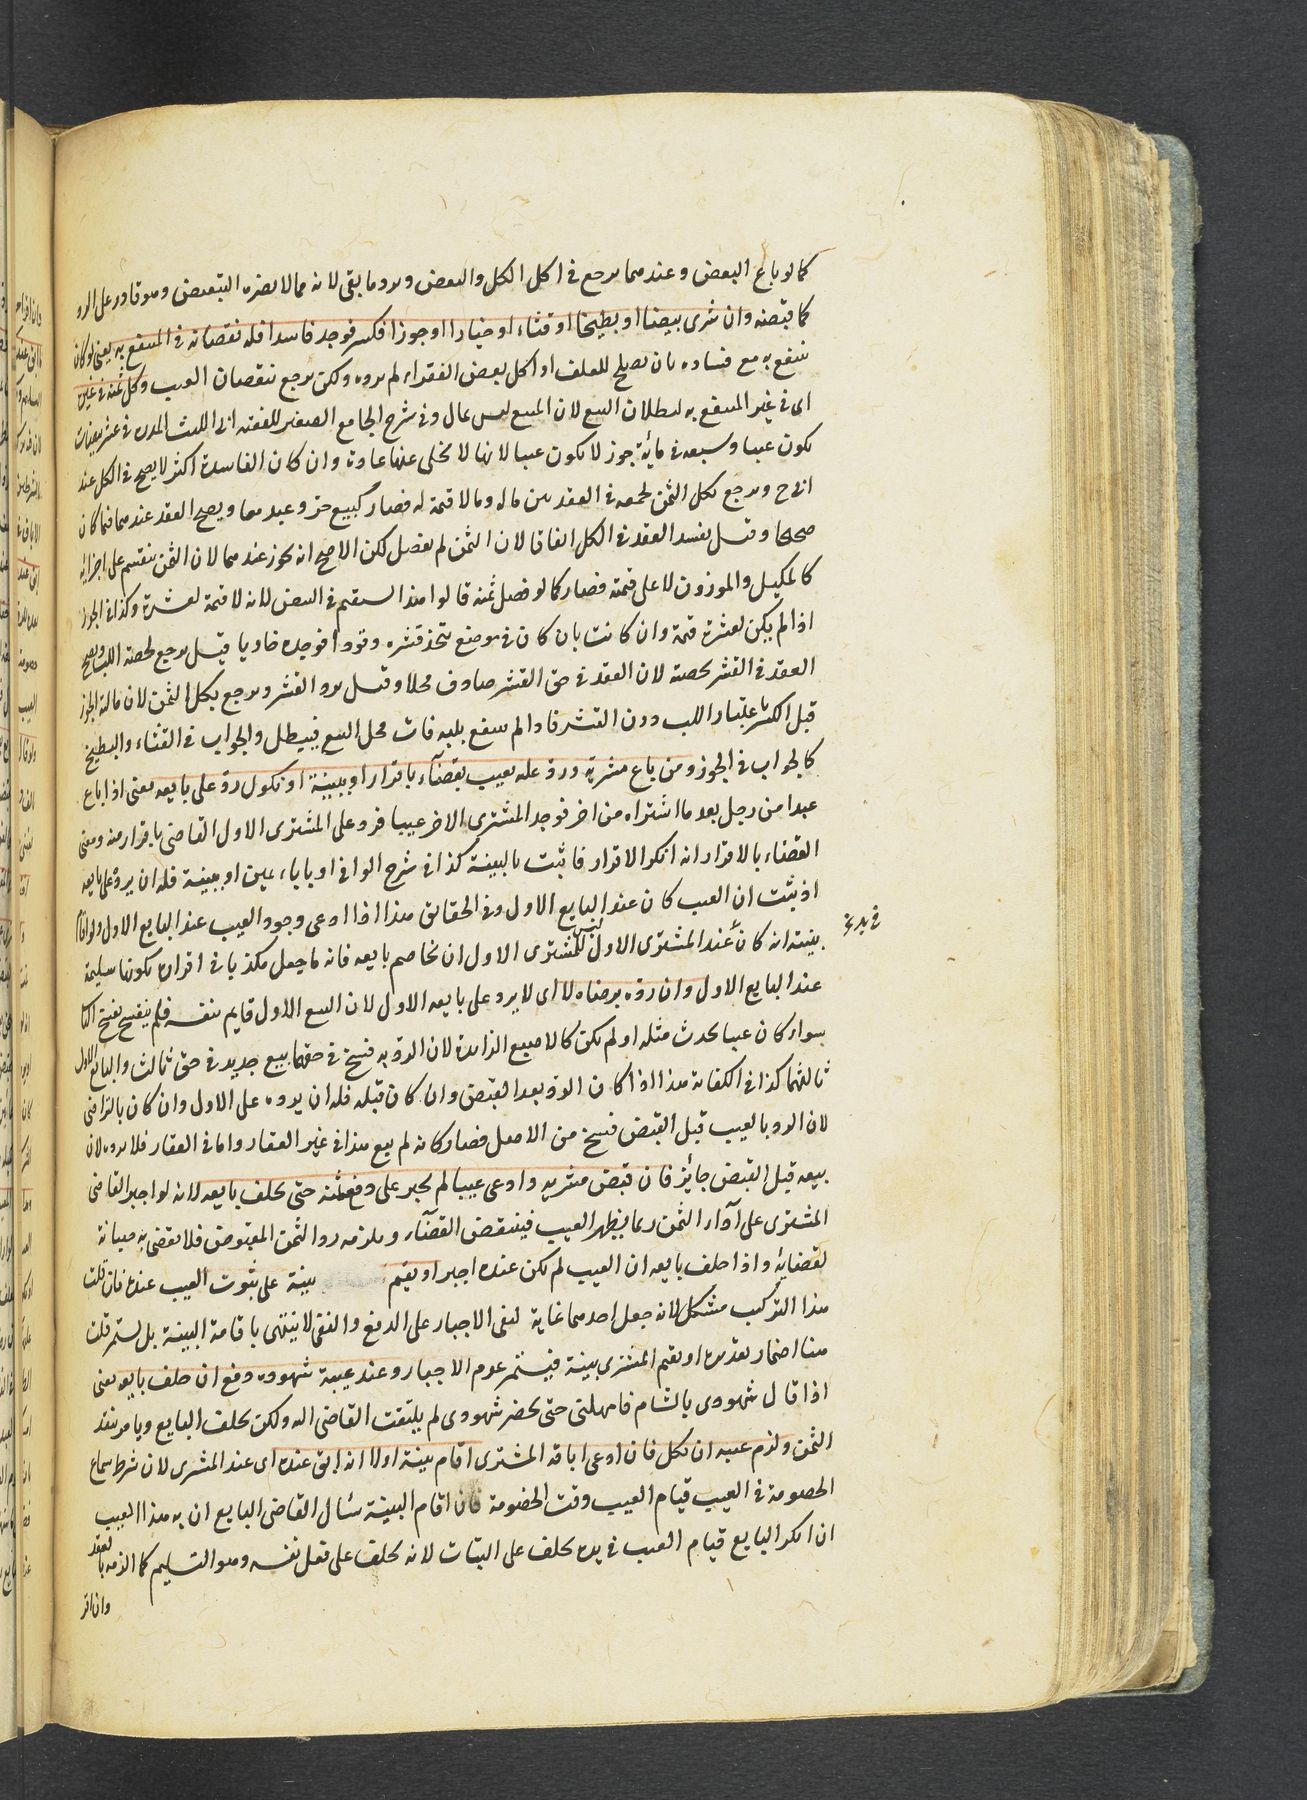 كما لو باع البعض وعندهما يرجع فى اكل الكل والبعض ويرد ما بقى لانه مما لا يضره التبعيض وهو قادر على الرد
كما قبضه وان شرى بيضا او بطيخا او قثاء او خيارا او جوزا فكسر فوجد فاسدا فله نقصانه فى المنتفع به يعنى لو كان
ينتفع به مع فساده بان يصلح للعلف او اكل بعض الفقراء لم يرده ولكن يرجع بنقصان العيب وكل ثمنه فى غيره
اى فى غير المنتفع به لبطلان البيع لان المبيع ليس بمال وفى شرح الجامع الصغير للفقيه ابى الليث المدره فى عشر بيضات
تكون عيبا وسبعه فى مائة جوز لا تكون عيبا لانها لا تخلى عنها عادة وان كان الفاسدة اكثر لا يصح فى الكل عند
ابى ح ويرجع بكل الثمن لجمعه فى العقد بين ماله وما لا قيمة له فصار كبيع حر وعبد معا ويصح العقد عندهما فيما كان
صحيحا وقيل يفسد العقد فى الكل اتفاقا لان الثمن لم يفصل لكن الاصح انه يجوز عندهما لان الثمن ينقسم على اجزائه
كالمكيل والموزون لا على قيمته فصار كما لو فصل ثمنه قالوا هذا يستقيم فى البيض لانه لا قيمة لقشره وكذا فى الجوز
اذا لم يكن لقشره قيمة وان كانت بان كان فى موضع يتخذ قشره وقودا فوجده خاويا قيل يرجع بحصة اللب ويصح
العقد فى القشر بحصته لان العقد فى حق القشر صادف محلا وقيل يرد القشر ويرجع بكل الثمن لان مالية الجوز
قبل الكسر باعتبار اللب دون القشر فاذا لم ينتفع بلبه فات محل البيع فيبطل والجواب فى القثاء والبطيخ
كالجواب فى الجوز ومن باع مشريه ورد عليه بعيب بقضآء باقرار او ببينة او نكول رد على بايعه يعنى اذا باع
عبدا من رجل بعد ما اشتراه من اخر فوجد المشترى الاخر عيبا فرد على المشترى الاول القاضى باقرار منه ومعنى
القضاء بالاقرار انه انكر الاقرار فاثبت بالبينة كذا فى شرح الوافى او باباء يمين او ببينة فله ان يرد على بايعه
اذ ثبت ان العيب كان عند البايع الاول وفى الحقايق هذا اذا ادعى وجود العيب عند البايع الاول ولو اقام
بينته انه كان عند المشترى الاول ليس للمشترى الاول ان يخاصم بايعه فانه ما جعل مكذبا فى اقراره بكونها سليمة
عند البايع الاول وان رده برضاه لا اى لا يرد على بايعه الاول لان البيع الاول قايم بنفسه فلم ينفسخ بفسخ الثا
سواء كان عيبا يحدث مثله او لم يكن كالاصبع الزايدة لان الرد به فسخ فى حقهما بيع جديد فى حق ثالث والبايع الاول
ثالثهما كذا فى الكفاية هذا اذا كان الرد بعد القبض وان كان قبله فله ان يرده على الاول وان كان بالتراضى
لان الرد بالعيب قبل القبض فسخ من الاصل فصار كانه لم يبع هذا فى غير العقار واما فى العقار فلا يرده لان
بيعه قبل القبض جايز فان قبض مشريه وادعى عيبا لم يجبر على دفع ثمنه حتى يحلف بايعه لانه لو اجبر القاضى
المشترى على آداء الثمن ربما يظهر العيب فينتقض القضآء ويلزمه رد الثمن المقبوض فلا يقضى به صيانة
لقضايه واذا حلف بايعه ان العيب لم يكن عنده اجبر او يقيم بينة على ثبوت العيب عنده فان قلت
هذا التركيب مشكل لانه جعل احدهما غاية لنفى الاجبار على الدفع والنفى لا ينتهى باقامة البينة بل يستمر قلت
هنا اضمار تقديره او يقيم المشترى بينة فيستمر عدم الاجبار وعند غيبة شهوده دفع ان حلف بايعه يعنى
اذا قال شهودى بالشام فامهلنى حتى يحضر شهودى لم يلتفت القاضى اليه ولكن يحلف البايع ويامر بنقد
الثمن ولزم عيبه ان نكل فان ادعى اباقه المشترى اقام بينة اولا انه ابق عنده اى عند المشترى لان شرط سماع
الخصومة فى العيب قيام العيب وقت الخصومة فان اقام البينة سئال القاضى البايع ان به هذا العيب
ان انكر البايع قيام العيب فى يده يحلف على البتات لانه يحلف على فعل نفسه وهو التسليم كما الزمه بالعقد
وان اقر
فى يده